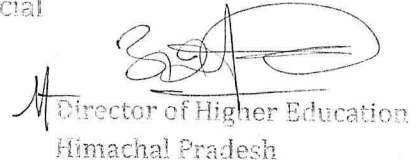 cial
Director of Higher Education
Himachal Pradesh